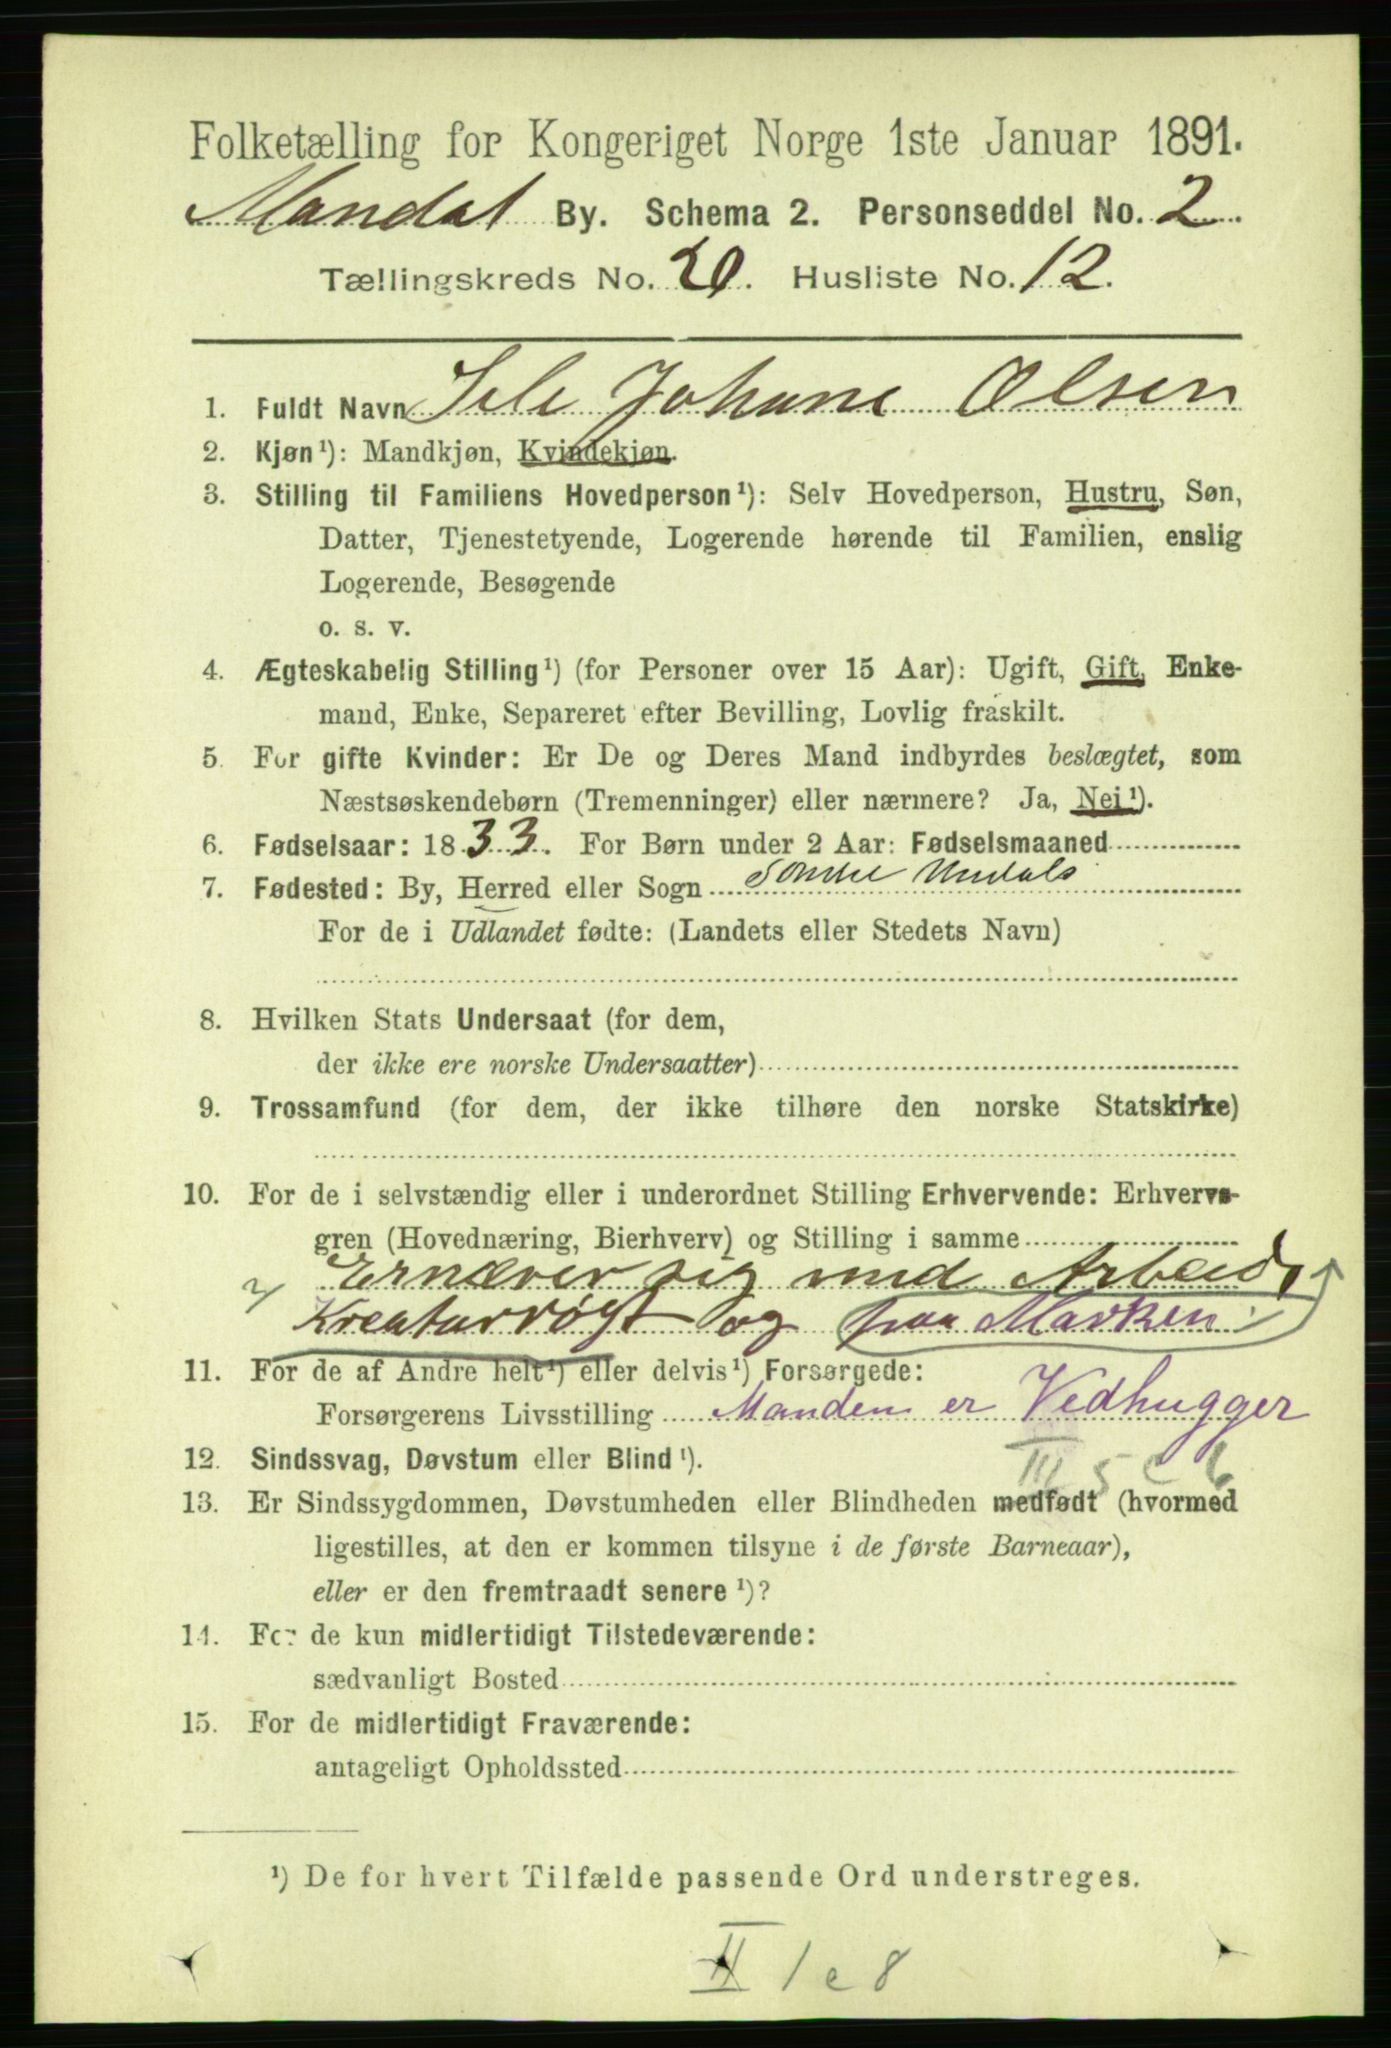 Folketælling for Kongeriget Norge 1ste Januar 1891.
Mandal By. Schema 2. Personseddel No. 2
Tællingskreds No. 20. Husliste No. 12.
1. Fuldt Navn Johane Olsen
2. Kjøn¹): Mandkjøn, Kvindekjøn.
3. Stilling til Familiens Hovedperson¹): Selv Hovedperson, Hustru, Søn,
Datter, Tjenestetyende, Logerende hørende til Familien, enslig
Logerende, Besøgende
o. s. v.
4. Ægteskabelig Stilling¹) (for Personer over 15 Aar): Ugift, Gift, Enke-
mand, Enke, Separeret efter Bevilling, Lovlig fraskilt.
5. For gifte Kvinder: Er De og Deres Mand indbyrdes beslægtet, som
Næstsøskendebørn (Tremenninger) eller nærmere? Ja, Nei¹).
6. Fødselsaar: 1833. For Børn under 2 Aar: Fødselsmaaned
7. Fødested: By, Herred eller Sogn Søndre Undals
For de i Udlandet fødte: (Landets eller Stedets Navn)
8. Hvilken Stats Undersaat (for dem,
der ikke ere norske Undersaatter)
9. Trossamfund (for dem, der ikke tilhøre den norske Statskirke)
10. For de i selvstændig eller i underordnet Stilling Erhvervende: Erhvervs-
gren (Hovednæring, Bierhverv) og Stilling i samme
Ernærer sig med Arbeid,
Kreaturrøgt og paa Marken.
11. For de af Andre helt¹) eller delvis¹) Forsørgede:
Forsørgerens Livsstilling Manden er Vedhugger
12. Sindssvag, Døvstum eller Blind¹).
III 5 c 6
13. Er Sindssygdommen, Døvstumheden eller Blindheden medfødt (hvormed
ligestilles, at den er kommen tilsyne i de første Barneaar),
eller er den fremtraadt senere¹)?
14. For de kun midlertidigt Tilstedeværende:
sædvanligt Bosted
15. For de midlertidigt Fraværende:
antageligt Opholdssted
¹) De for hvert Tilfælde passende Ord understreges.
II 1 e 8